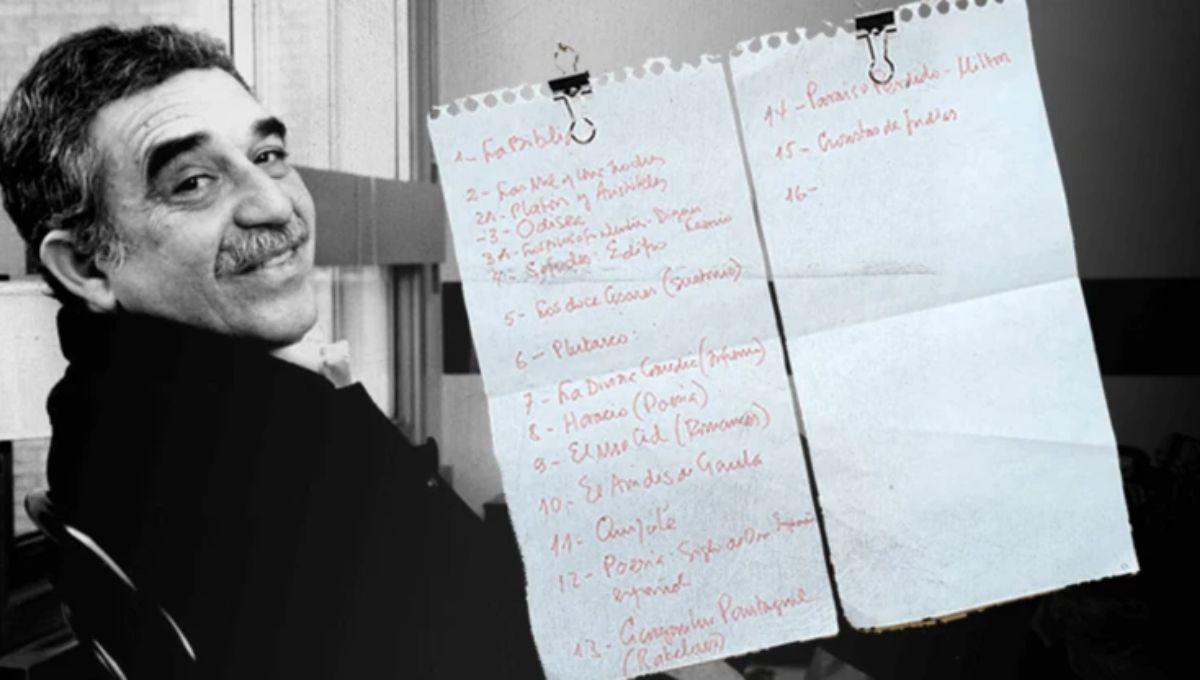 1- La Biblia
2- Las Mil y Una Noches
2A- Platón y Aristóteles
-3- Odisea
3A- Dizan
4- Sófocles: Edipo
5- Los doce Césares (Suetonio)
6- Plutarco.
7- La Divina Comedia (Infierno)
8- Horacio (Poesía)
9- El Mio Cid (Romances)
10- El Amadis de Gaula
11- Quijote
12- Poesía Siglo de Oro
español
13- Gargantua Pantagruel
(Rabelais)
14- Paraiso Perdido - Milton
15- Cronistas de Indias
16-